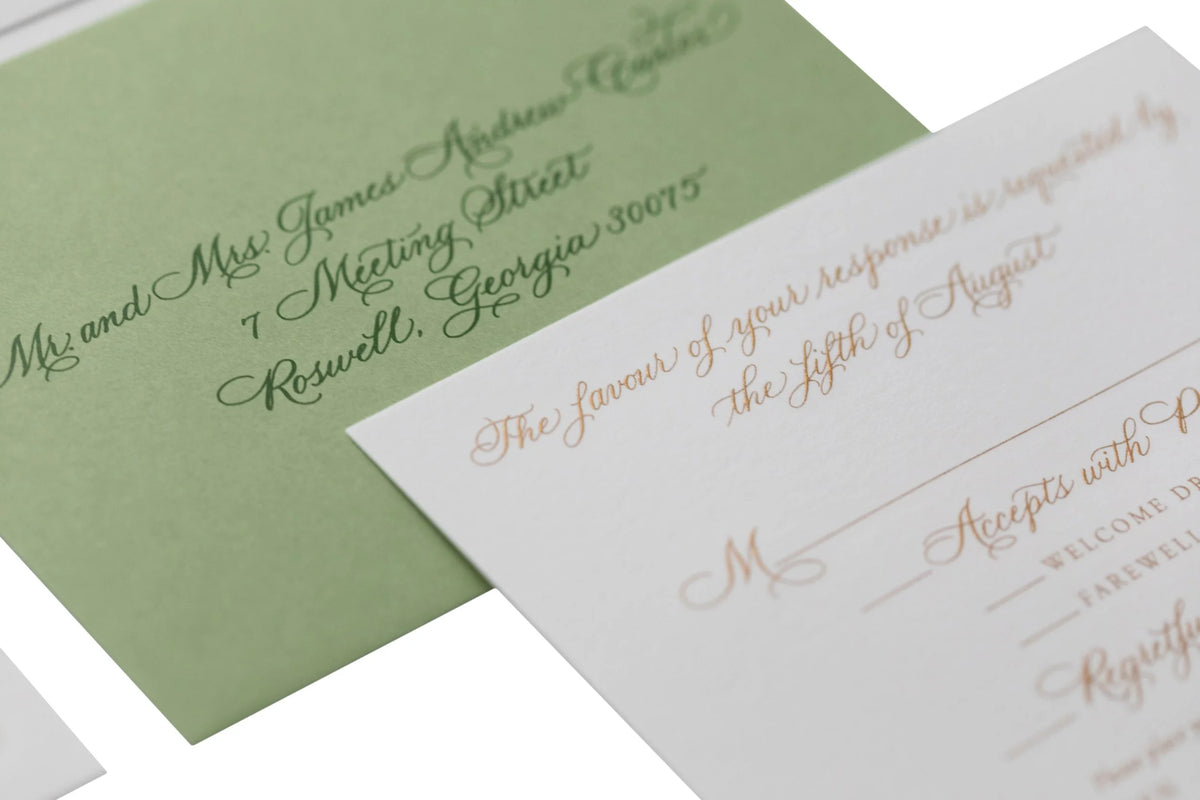 Mr. and Mrs. James Andrew
7 Meeting Street
Roswell, Georgia 30075
The favour of your response is requested by
the fifth of August
M
Accepts with
WELCOME
FAREWELL